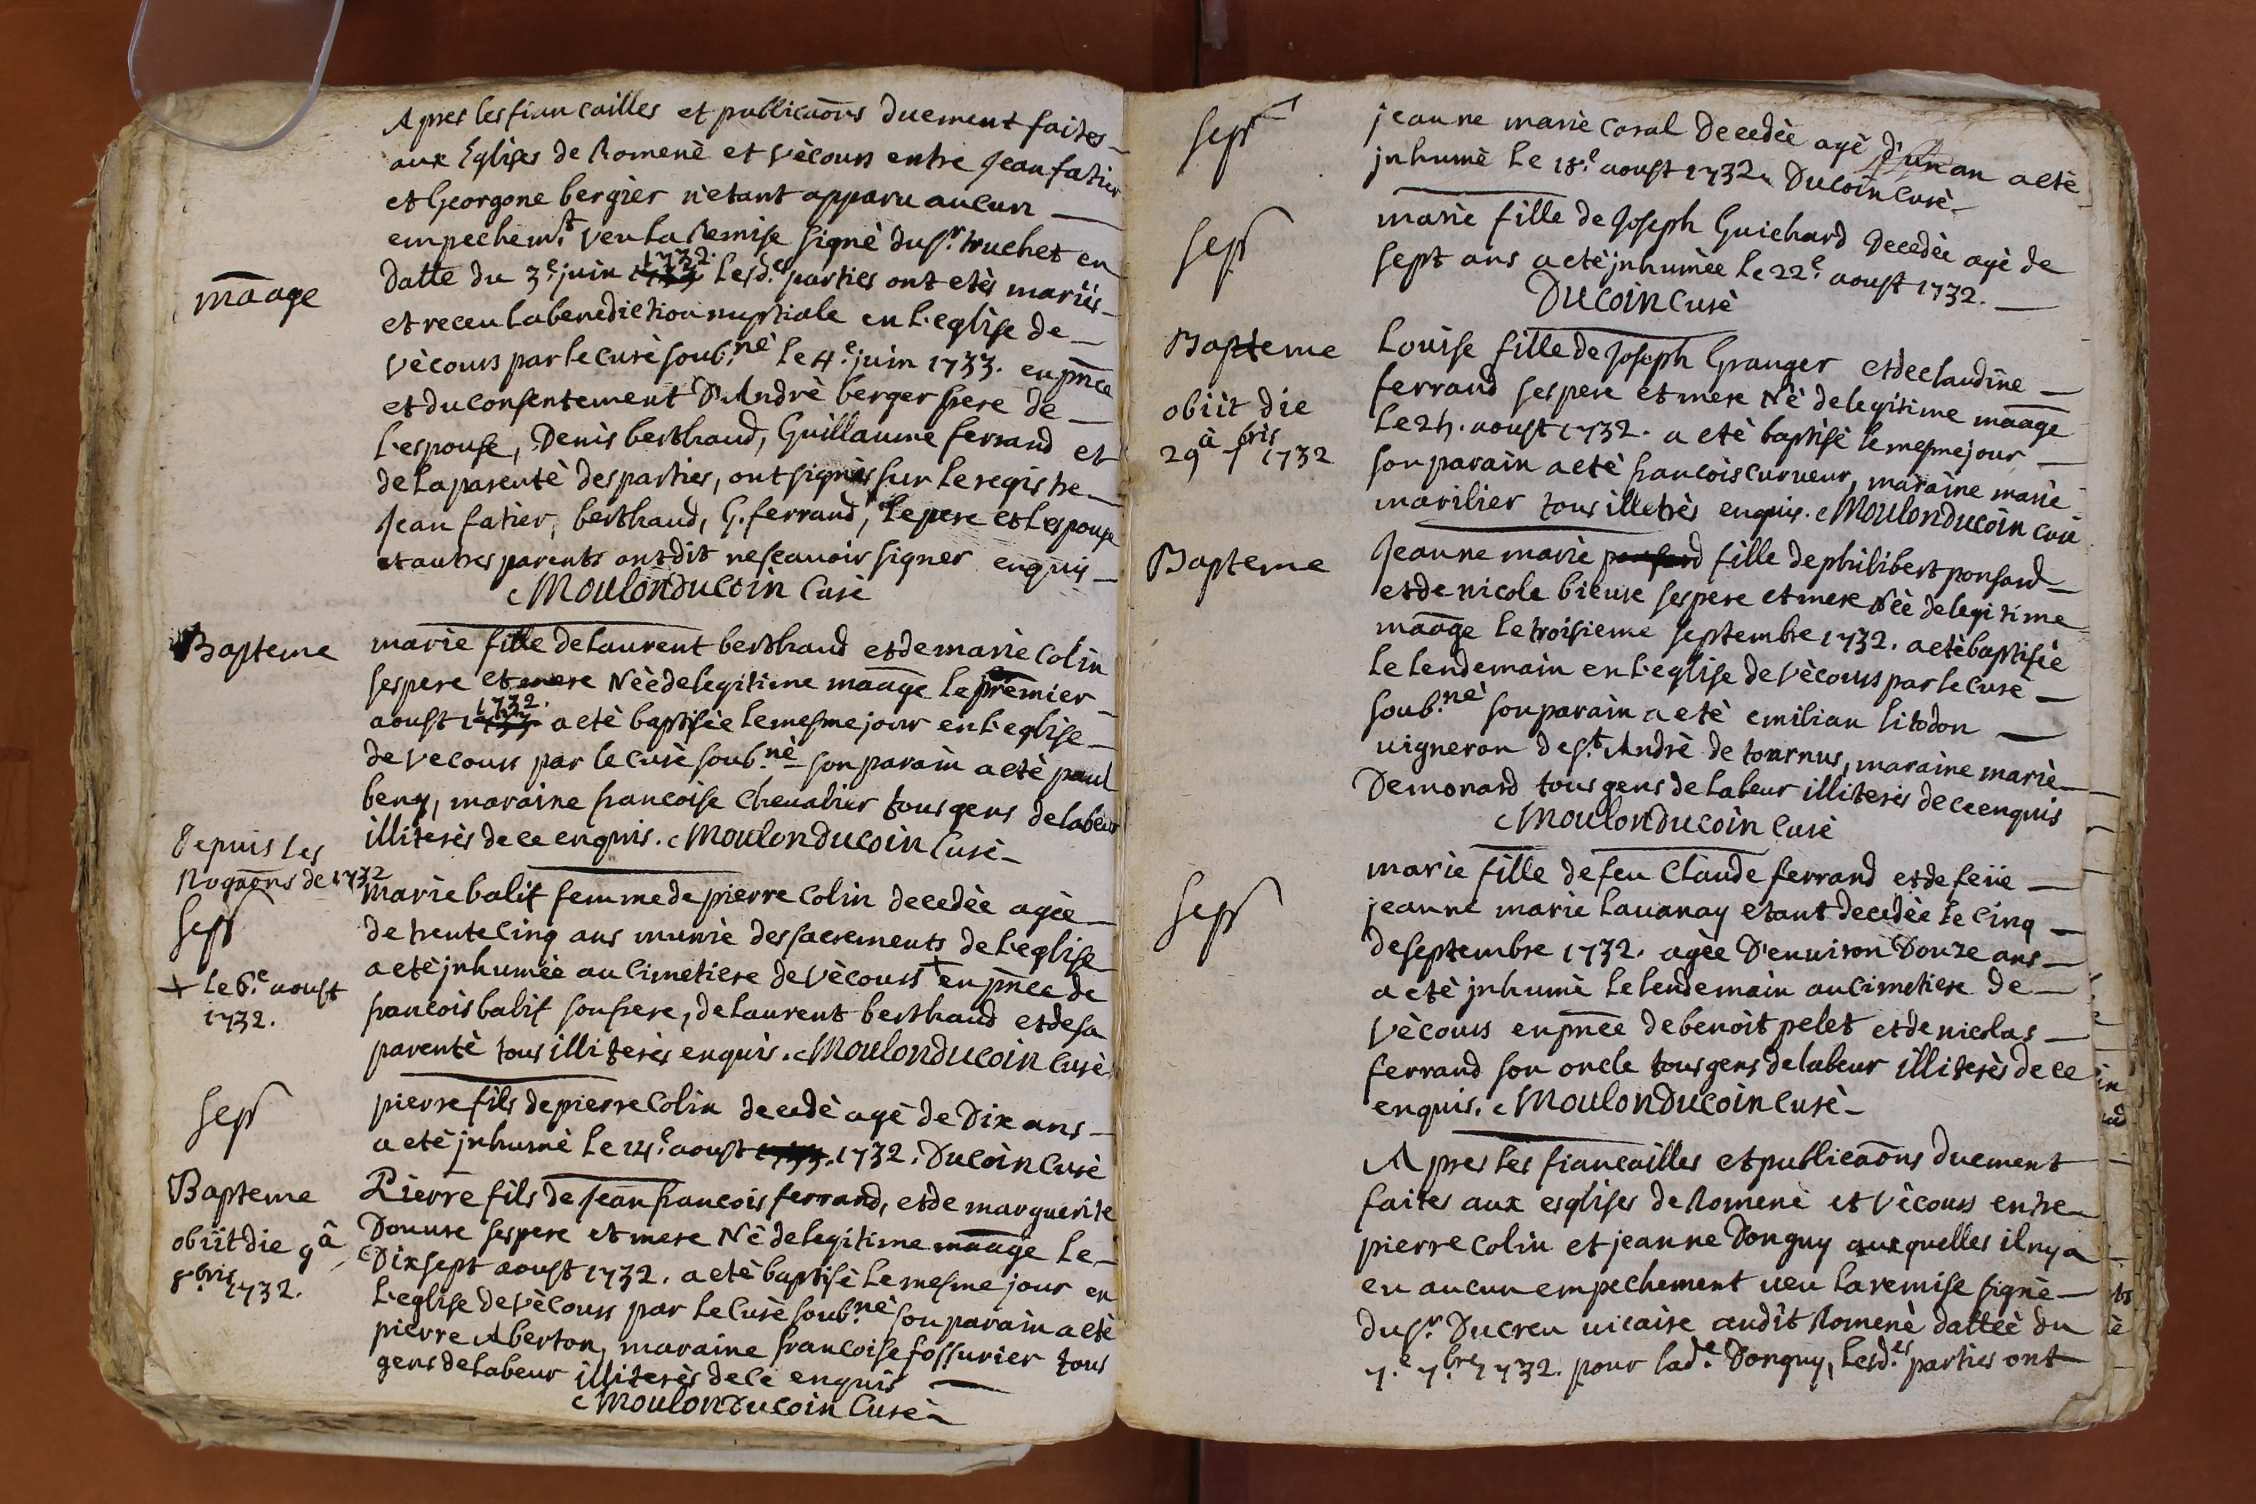 Apres les fiancailles et publicaõns duement faites
aux Eglises de Romenè et vècours entre Jean fatier
et Georgone bergier n'etant apparu aucun
empechem.t veu la Remise signè du sr. truchet en
maãge
datte du 3.e juin 1733 1732. les d.es parties ont etès mariés
et receu la benediction nuptiale en L'eglise de
vècours par le curè soub.nè le 4.e juin 1733. en pñce
et du consentement D'Andrè berger frere de
L'espouse, Denis berthaud, Guillaume ferrand et
de la parentè des parties, ont signès sur le registre
Jean fatier, berthaud, G. ferrand, le pere et l'espouse
et autres parents ont dit ne scauoir signer enquis
Moulon Ducoin Curè
Bapteme
marie fille de Laurent berthaud et de marie Colin
ses pere et mere Nèè de legitime maãge le premier
aoust 1733 1732. a etè baptisèe le mesme jour en L'eglise
de vecours par le curè soub.nè son parain a etè paul
beny, maraine francoise Chevalier tous gens de labeur
illiterès de ce enquis. Moulon Ducoin Curè
Depuis les
Rogaõns de 1732
sepr
+ le 6.e aoust
1732.
Marie balit femme de pierre Colin decedèe agèe
de trente Cinq ans munie des sacrements de L'eglise
a etè jnhumèe au Cimetiere de vècours + en pñce de
francois balit son frere, de Laurent berthaud et de sa
parentè tous illiterès enquis. Moulon Ducoin Curè
sepr
pierre fils de pierre Colin decedè agè de Dix ans
a etè jnhumè le 14.e aoust 1733. 1732. Ducoin Curè
Bapteme
obiit die 9â
8bris 1732.
Pierre fils de Jean francois ferrand, et de marguerite
Donure ses pere et mere Nè de legitime maãge le
Dix sept aoust 1732. a etè baptisè le mesme jour en
L'eglise de vècours par le Curè soub.nè son parain a etè
pierre Aberton, maraine francoise fossurier tous
gens de labeur illiterès de ce enquis
Moulon Ducoin Curè
sepr
jeanne marie Coral Decedèe agè d'un an a etè
jnhumè le 18.e aoust 1732. Ducoin Curè
sepr
marie fille de Joseph Guichard Decedèe agè de
sept ans a etè jnhumèe le 22.e aoust 1732.
Ducoin Curè
Bapteme
obiit die
29â 7bris 1732
Louise fille de Joseph Granger et de claudine
ferrand ses pere et mere Nè de legitime maãge
le 24. aoust 1732. a etè baptisè le mesme jour
son parain a etè francois curueur, maraine marie
marilier tous illetrès enquis. Moulon Ducoin Curè
Bapteme
Jeanne marie ponsard fille de philibert ponsard
et de nicole bieure ses pere et mere Nèè de legitime
maãge le troisieme septembre 1732. a etè baptisèe
le lendemain en L'eglise de vècours par le curè
soub.nè son parain a etè emilian litodon
uigneron de s.t Andrè de tournus, maraine marie
Demonard tous gens de labeur illiterès de ce enquis
Moulon Ducoin Curè
sepr
marie fille de feu Claude ferrand et de feüe
jeanne marie lauanay etant decedèe le Cinq
de septembre 1732. agèe D'enuiron Douze ans
a etè jnhumè le lendemain au Cimetiere de
vècours en pñce de benoit pelet et de nicolas
ferrand son oncle tous gens de labeur illiterès de ce
enquis. Moulon Ducoin Curè
Apres les fiancailles et publicaõns duement
faites aux esglises de Romenè et vècours entre
pierre Colin et jeanne Donguy auxquelles il n'y a
eu aucun empechement ueu la remise signè
du sr. Ducreu uicaire audit Romenè dattèe du
7.e 7.bre 1732. pour lad.e Donguy, lesd.es parties ont